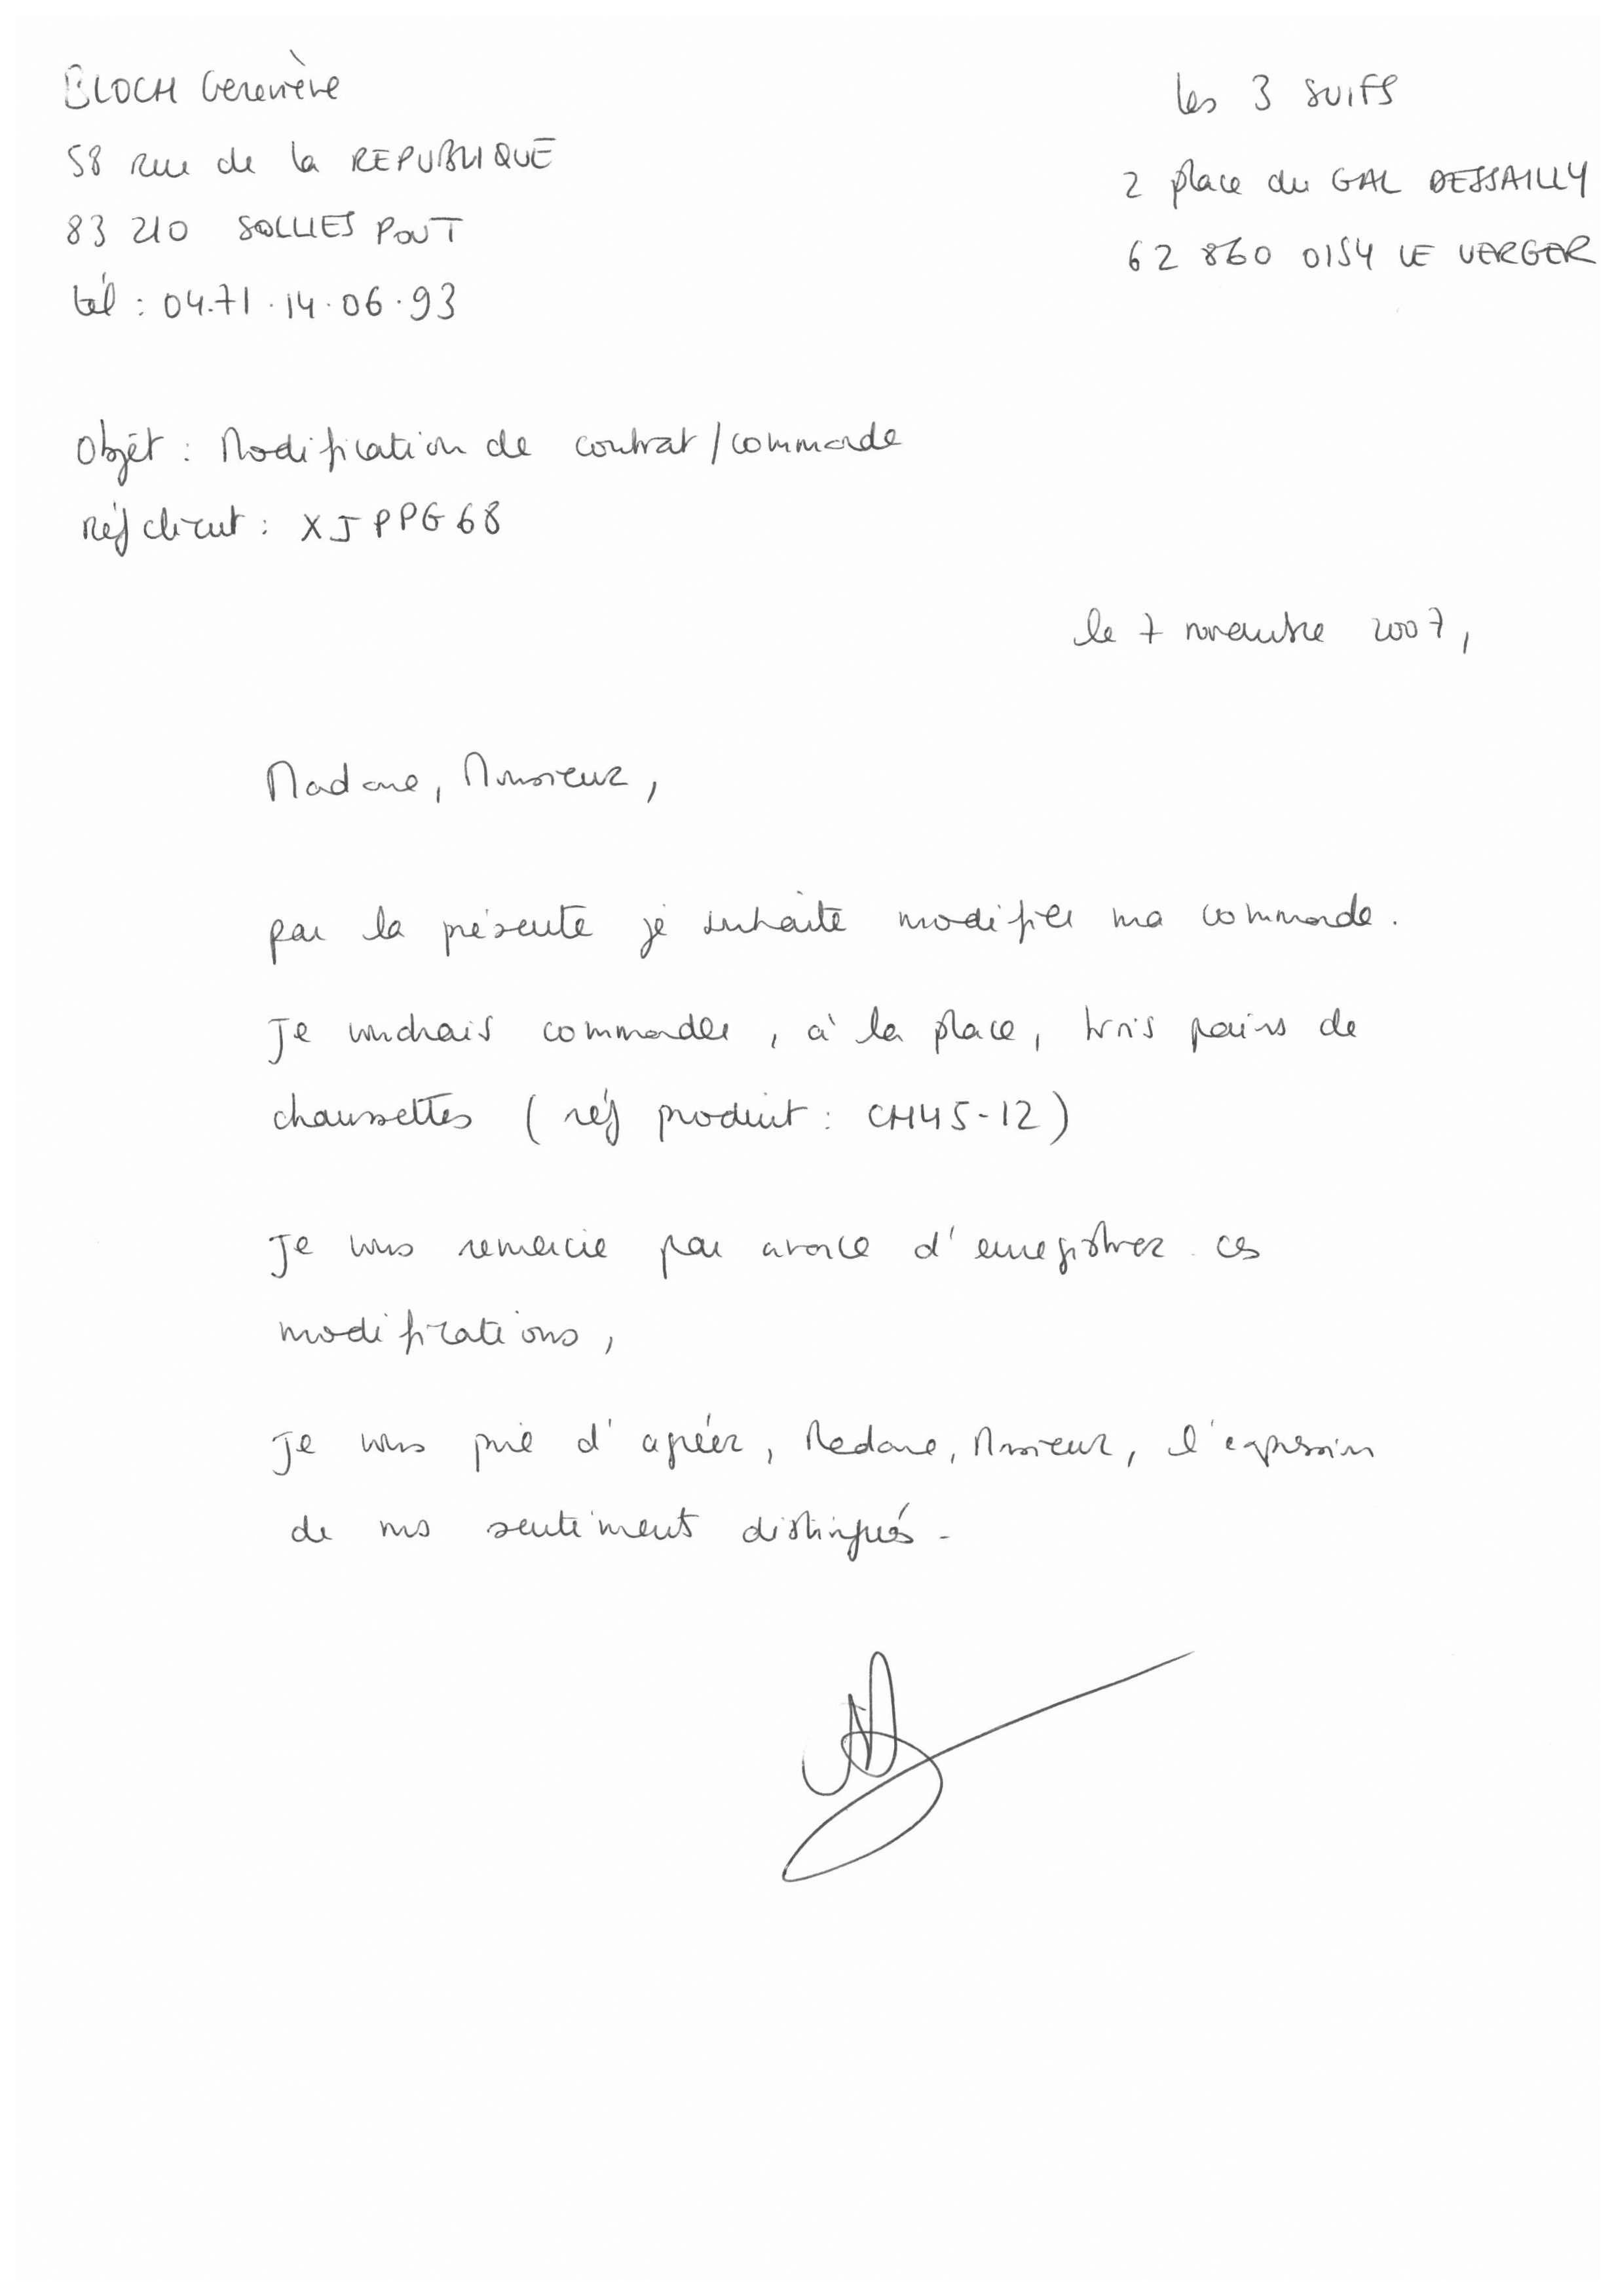 BLOCH Geneviève
58 rue de la REPUBLIQUE
83 210 SOLLIES PONT
tél : 04.71.14.06.93
les 3 SUIFS
2 place du GAL DESSAILLY
62 860 OISY LE VERGER
Objet : Modification de contrat/commande
Réf client : XJPPG68
le 7 novembre 2007,
Madame, Monsieur,
par la présente je souhaite modifier ma commande.
Je voudrais commander, à la place, trois paires de
chaussettes (réf produit : CH45-12)
Je vous remercie par avance d'enregistrer ces
modifications,
Je vous prie d'agréer, Madame, Monsieur, l'expression
de mes sentiments distingués.